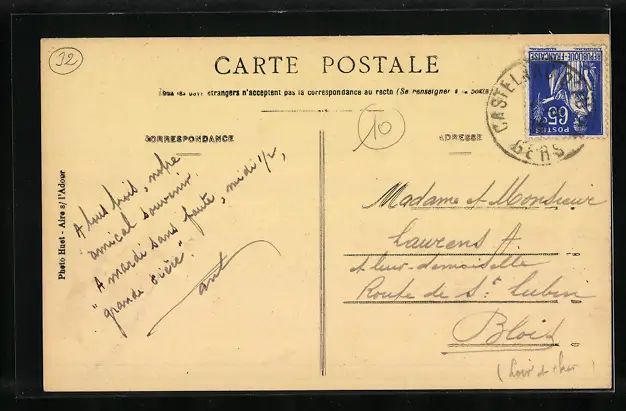 32
CARTE POSTALE
Tous les pays étrangers n'acceptent pas la correspondance au recto (Se renseigner à la poste)
10
CORRESPONDANCE
ADRESSE
A tous trois, notre
amical souvenir.
A mardi sans faute, midi 1/2,
"grande
Photo Huet - Aire s/ l'Adour
REPUBLIQUE FRANÇAISE
65c
POSTES
CASTELN
GERS
Madame et Monsieur
Laurens A.
et leur demoiselle
Route de St Lubin
Blois
(Loir et Cher)